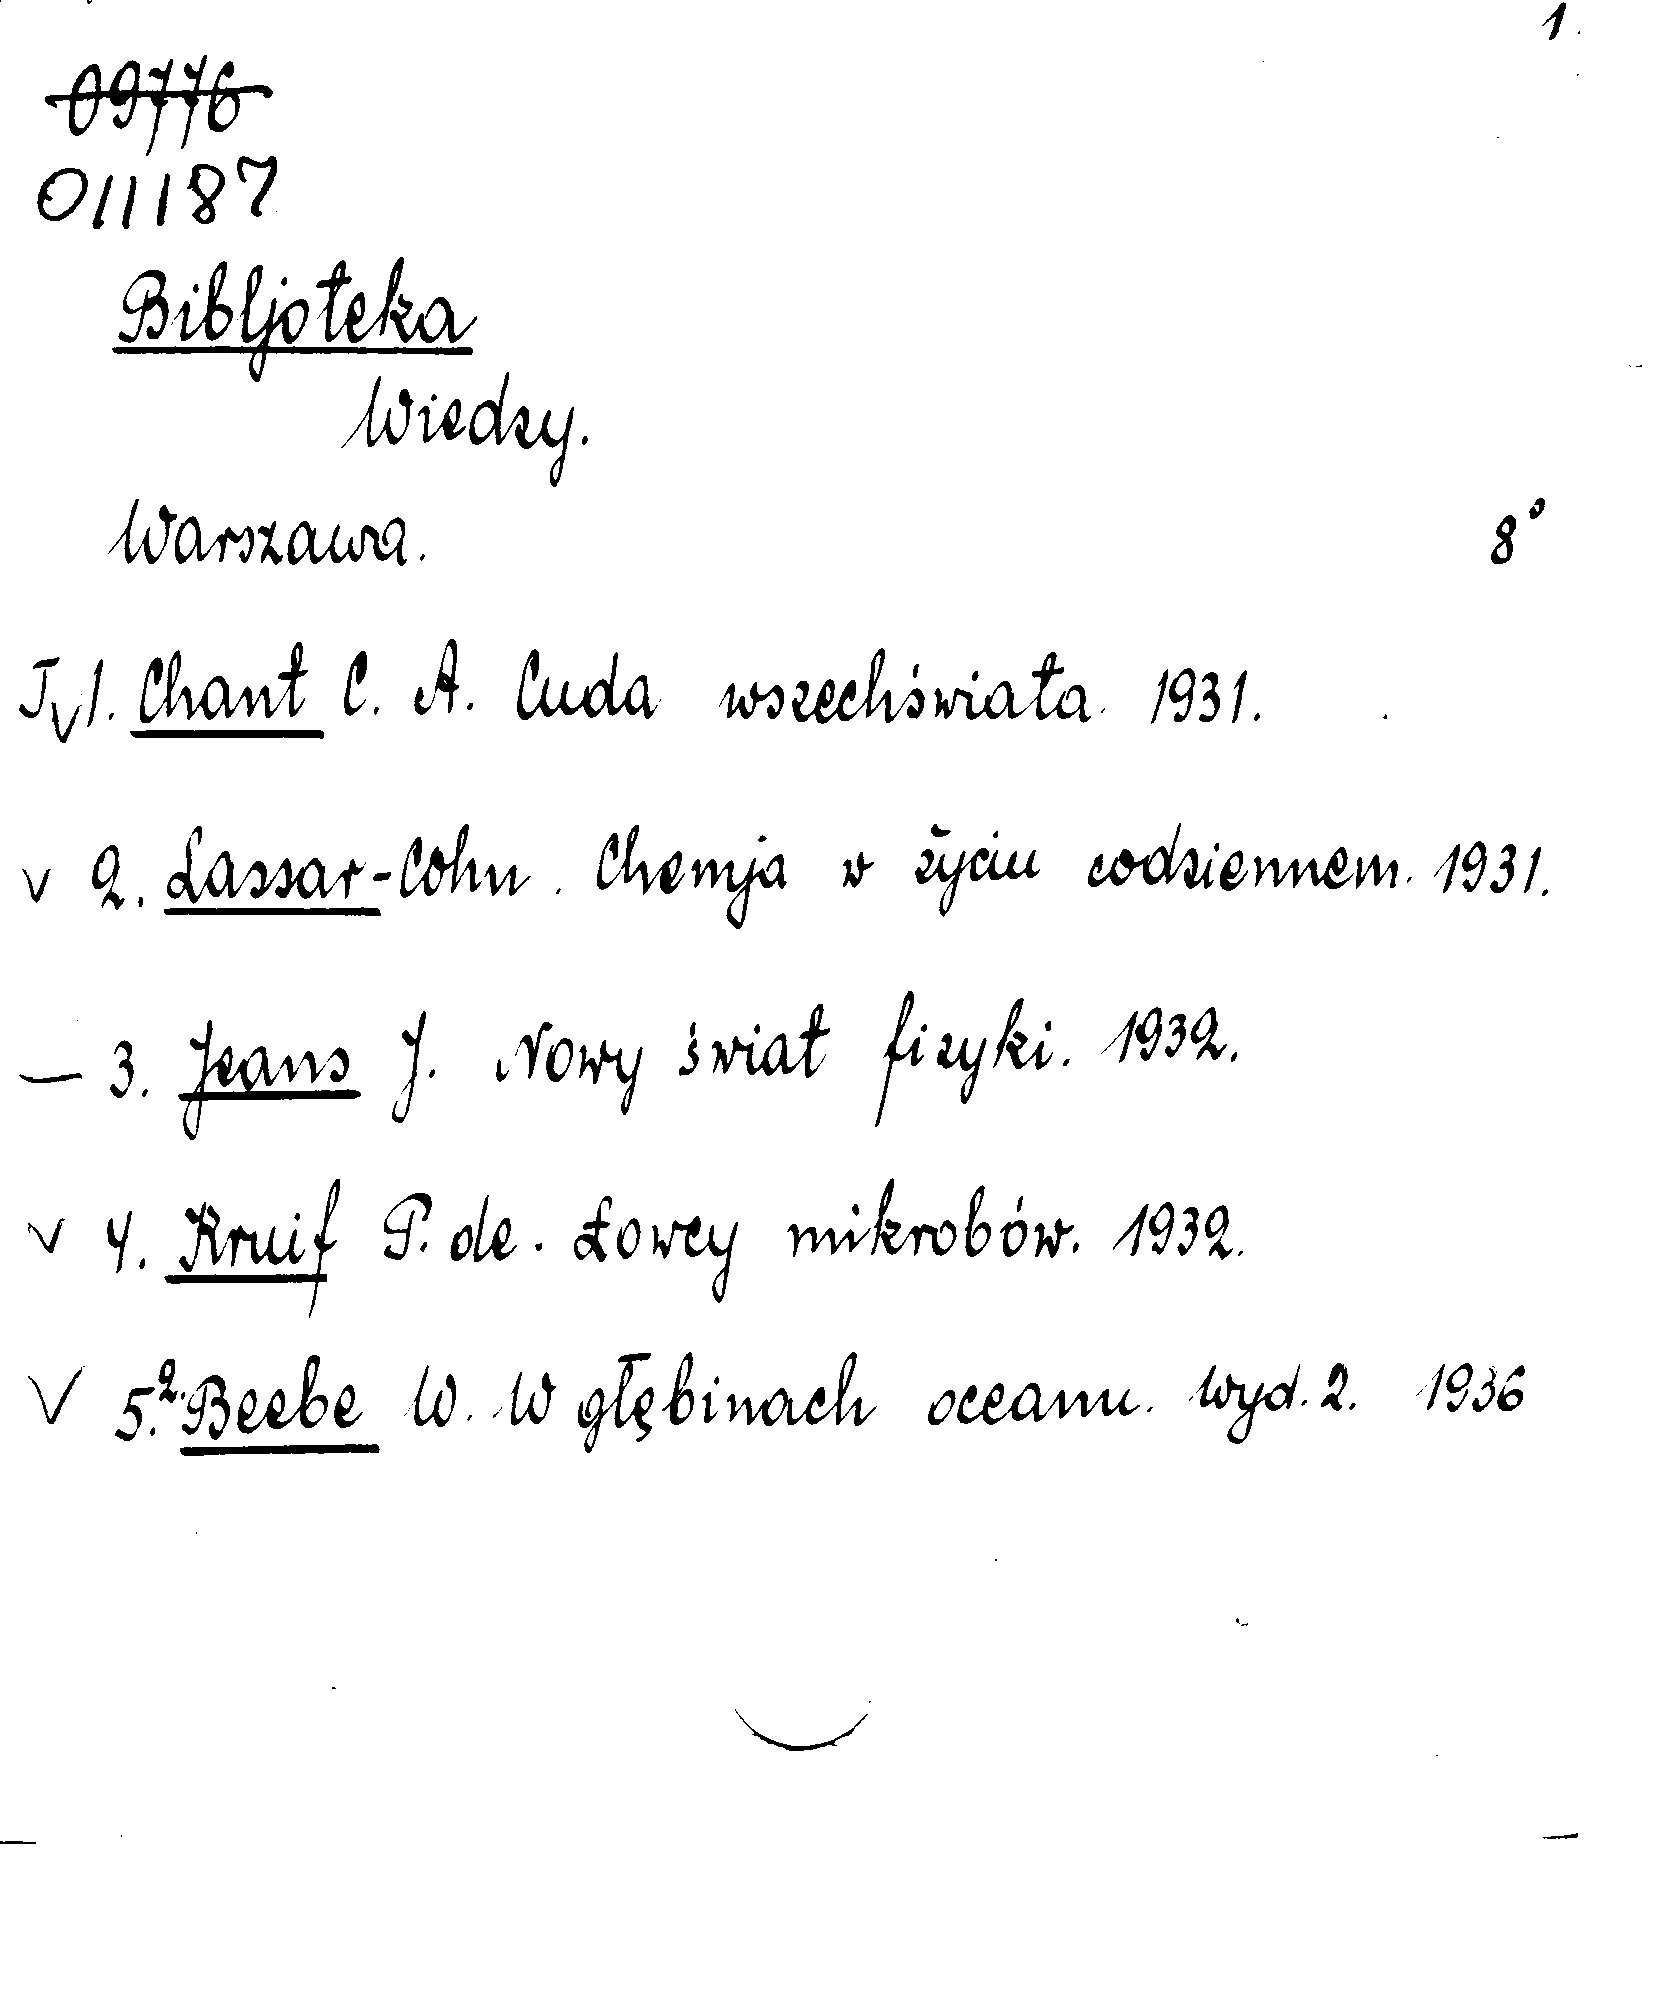 1.
09776
011187
Bibljoteka
Wiedzy.
Warszawa. 8°
T. v 1. Chant C. A. Cuda wszechświata. 1931.
v 2. Lassar-Cohn. Chemja w życiu codziennem. 1931.
— 3. Jeans J. Nowy świat fizyki. 1932.
v 4. Kruif P. de. Łowcy mikrobów. 1932.
V 5.² Beebe W. W głębinach oceanu. Wyd. 2. 1936